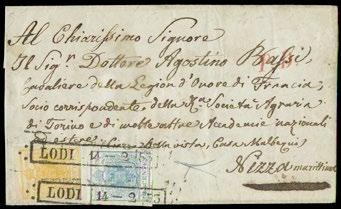 Al Chiarissimo Signore
Il Sigr. Dottore Agostino Bassi,
Cavaliere della Legion d'Onore di Francia,
Socio corrispondente, della Ra. Società Agraria
di Torino e di molte altre Accademie nazionali
ed estere, vista, Casa
Nizza marittima
LODI 14-2-53
LODI 14-2-53